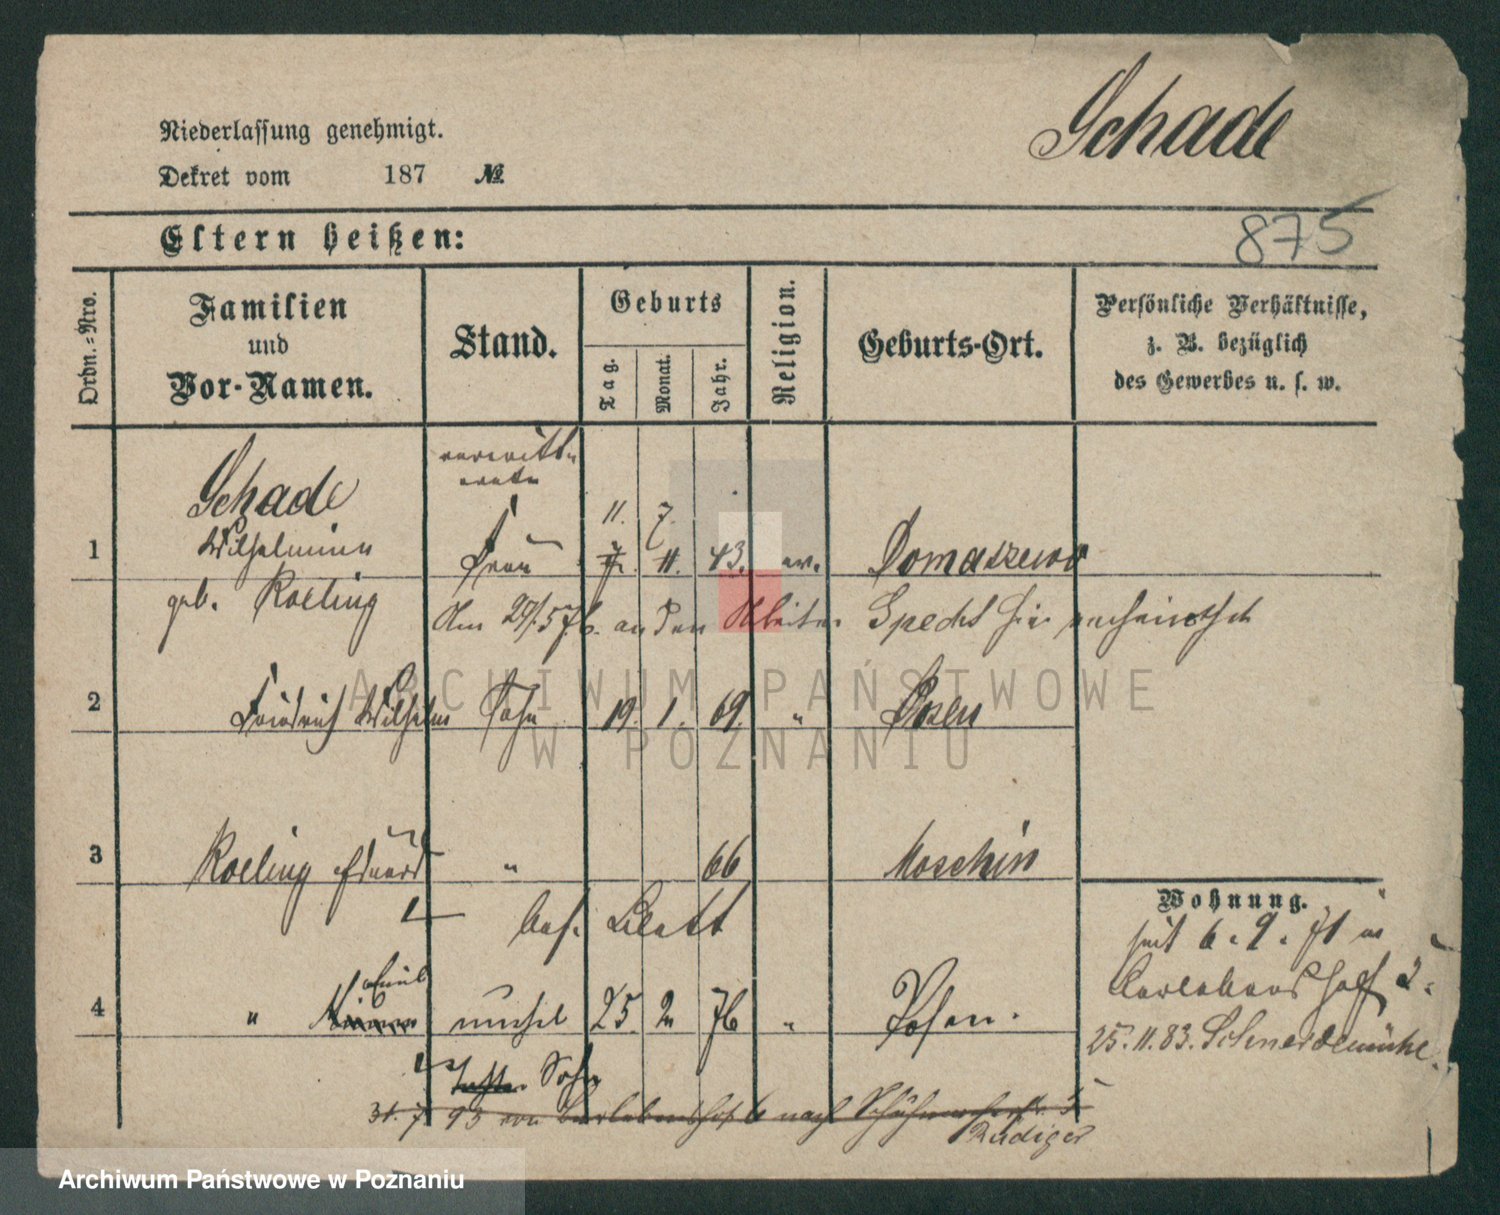 Schade
Niederlassung genehmigt.
Dekret vom 187 №
875
Eltern heißen:
Ordn.-Nro.
Familien und Vor-Namen.
Stand.
Geburts
Tag.
Monat.
Jahr.
Religion.
Geburts-Ort.
Persönliche Verhältnisse,
z. B. bezüglich
des Gewerbes u. s. w.
verwitt-
wete
Schade
11. 7.
1 Wilhelmine Frau 7. 11. 43. ev. Domaszewo
geb. Roeling
Am 27/5 76. an den Arbeiter Specht hier verheirathet
2 Friedrich Wilhelm Sohn 19. 1. 69. " Posen
3 Roeling Eduard " 66 Moschin
bes. Blatt
Wohnung.
seit 6. 9. 71 in
Emil
4 " unehel 25. 2 76 " Posen.
25. 11. 83. Schneidemühle
Sohn
31. 7 93 von nach
Rüdiger
ARCHIWUM PAŃSTWOWE
W POZNANIU
Archiwum Państwowe w Poznaniu